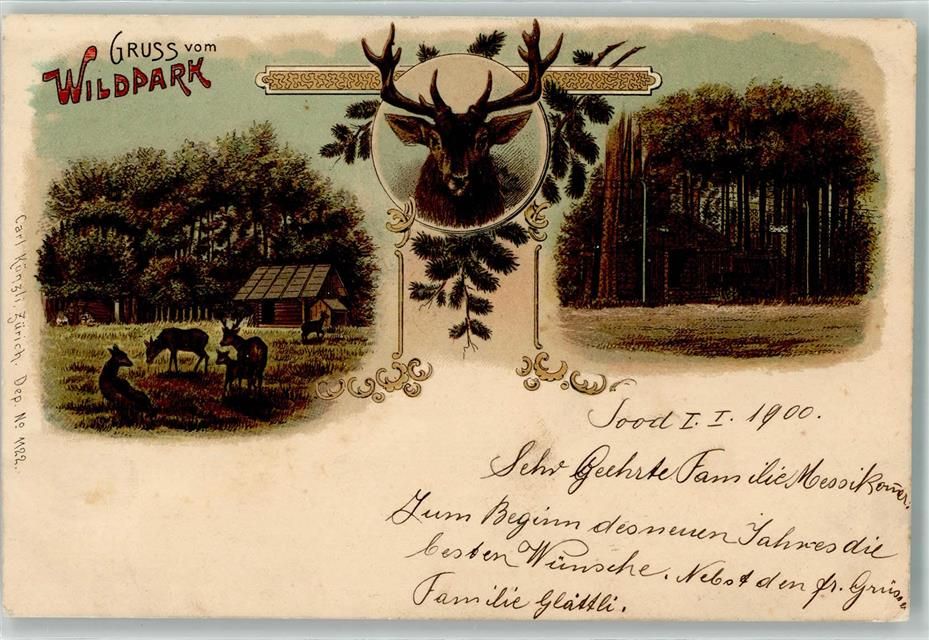 GRUSS vom
WILDPARK
Carl Künzli, Zürich. Dep. No 1122.
Sood I. I. 1900.
Sehr Geehrte Familie Messikomer.
Zum Beginn des neuen Jahres die
besten Wünsche. Nebst den fr. Grüsse
Familie Glättli.